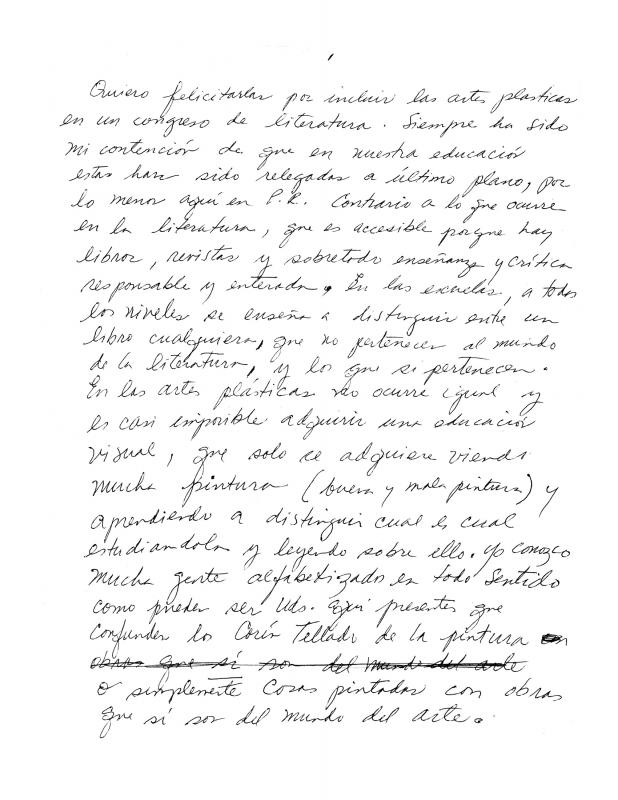 Quiero felicitarlas por incluir las artes plasticas
en un congreso de literatura. Siempre ha sido
mi contención de que en nuestra educación
estas han sido relegadas a último plano, por
lo menos aquí en P.R. Contrario a lo que ocurre
en la literatura, que es accesible porque hay
libros, revistas y sobretodo enseñanza y crítica
responsable y enterada. En las escuelas, a todos
los niveles se enseña a distinguir entre un
libro cualquiera, que no pertenecen al mundo
de la literatura, y los que si pertenecen.
En las artes plásticas no ocurre igual y
es casi imposible adquirir una educación
visual, que solo se adquiere viendo
mucha pintura (buena y mala pintura) y
aprendiendo a distinguir cual es cual
estudiandola y leyendo sobre ello. Yo conozco
mucha gente alfabetizado en todo sentido
como pueden ser Uds. aquí presentes que
confunden los Corín Tellado de la pintura en
obras que sí son del mundo del arte
o simplemente cosas pintadas con obras
que sí son del mundo del arte.